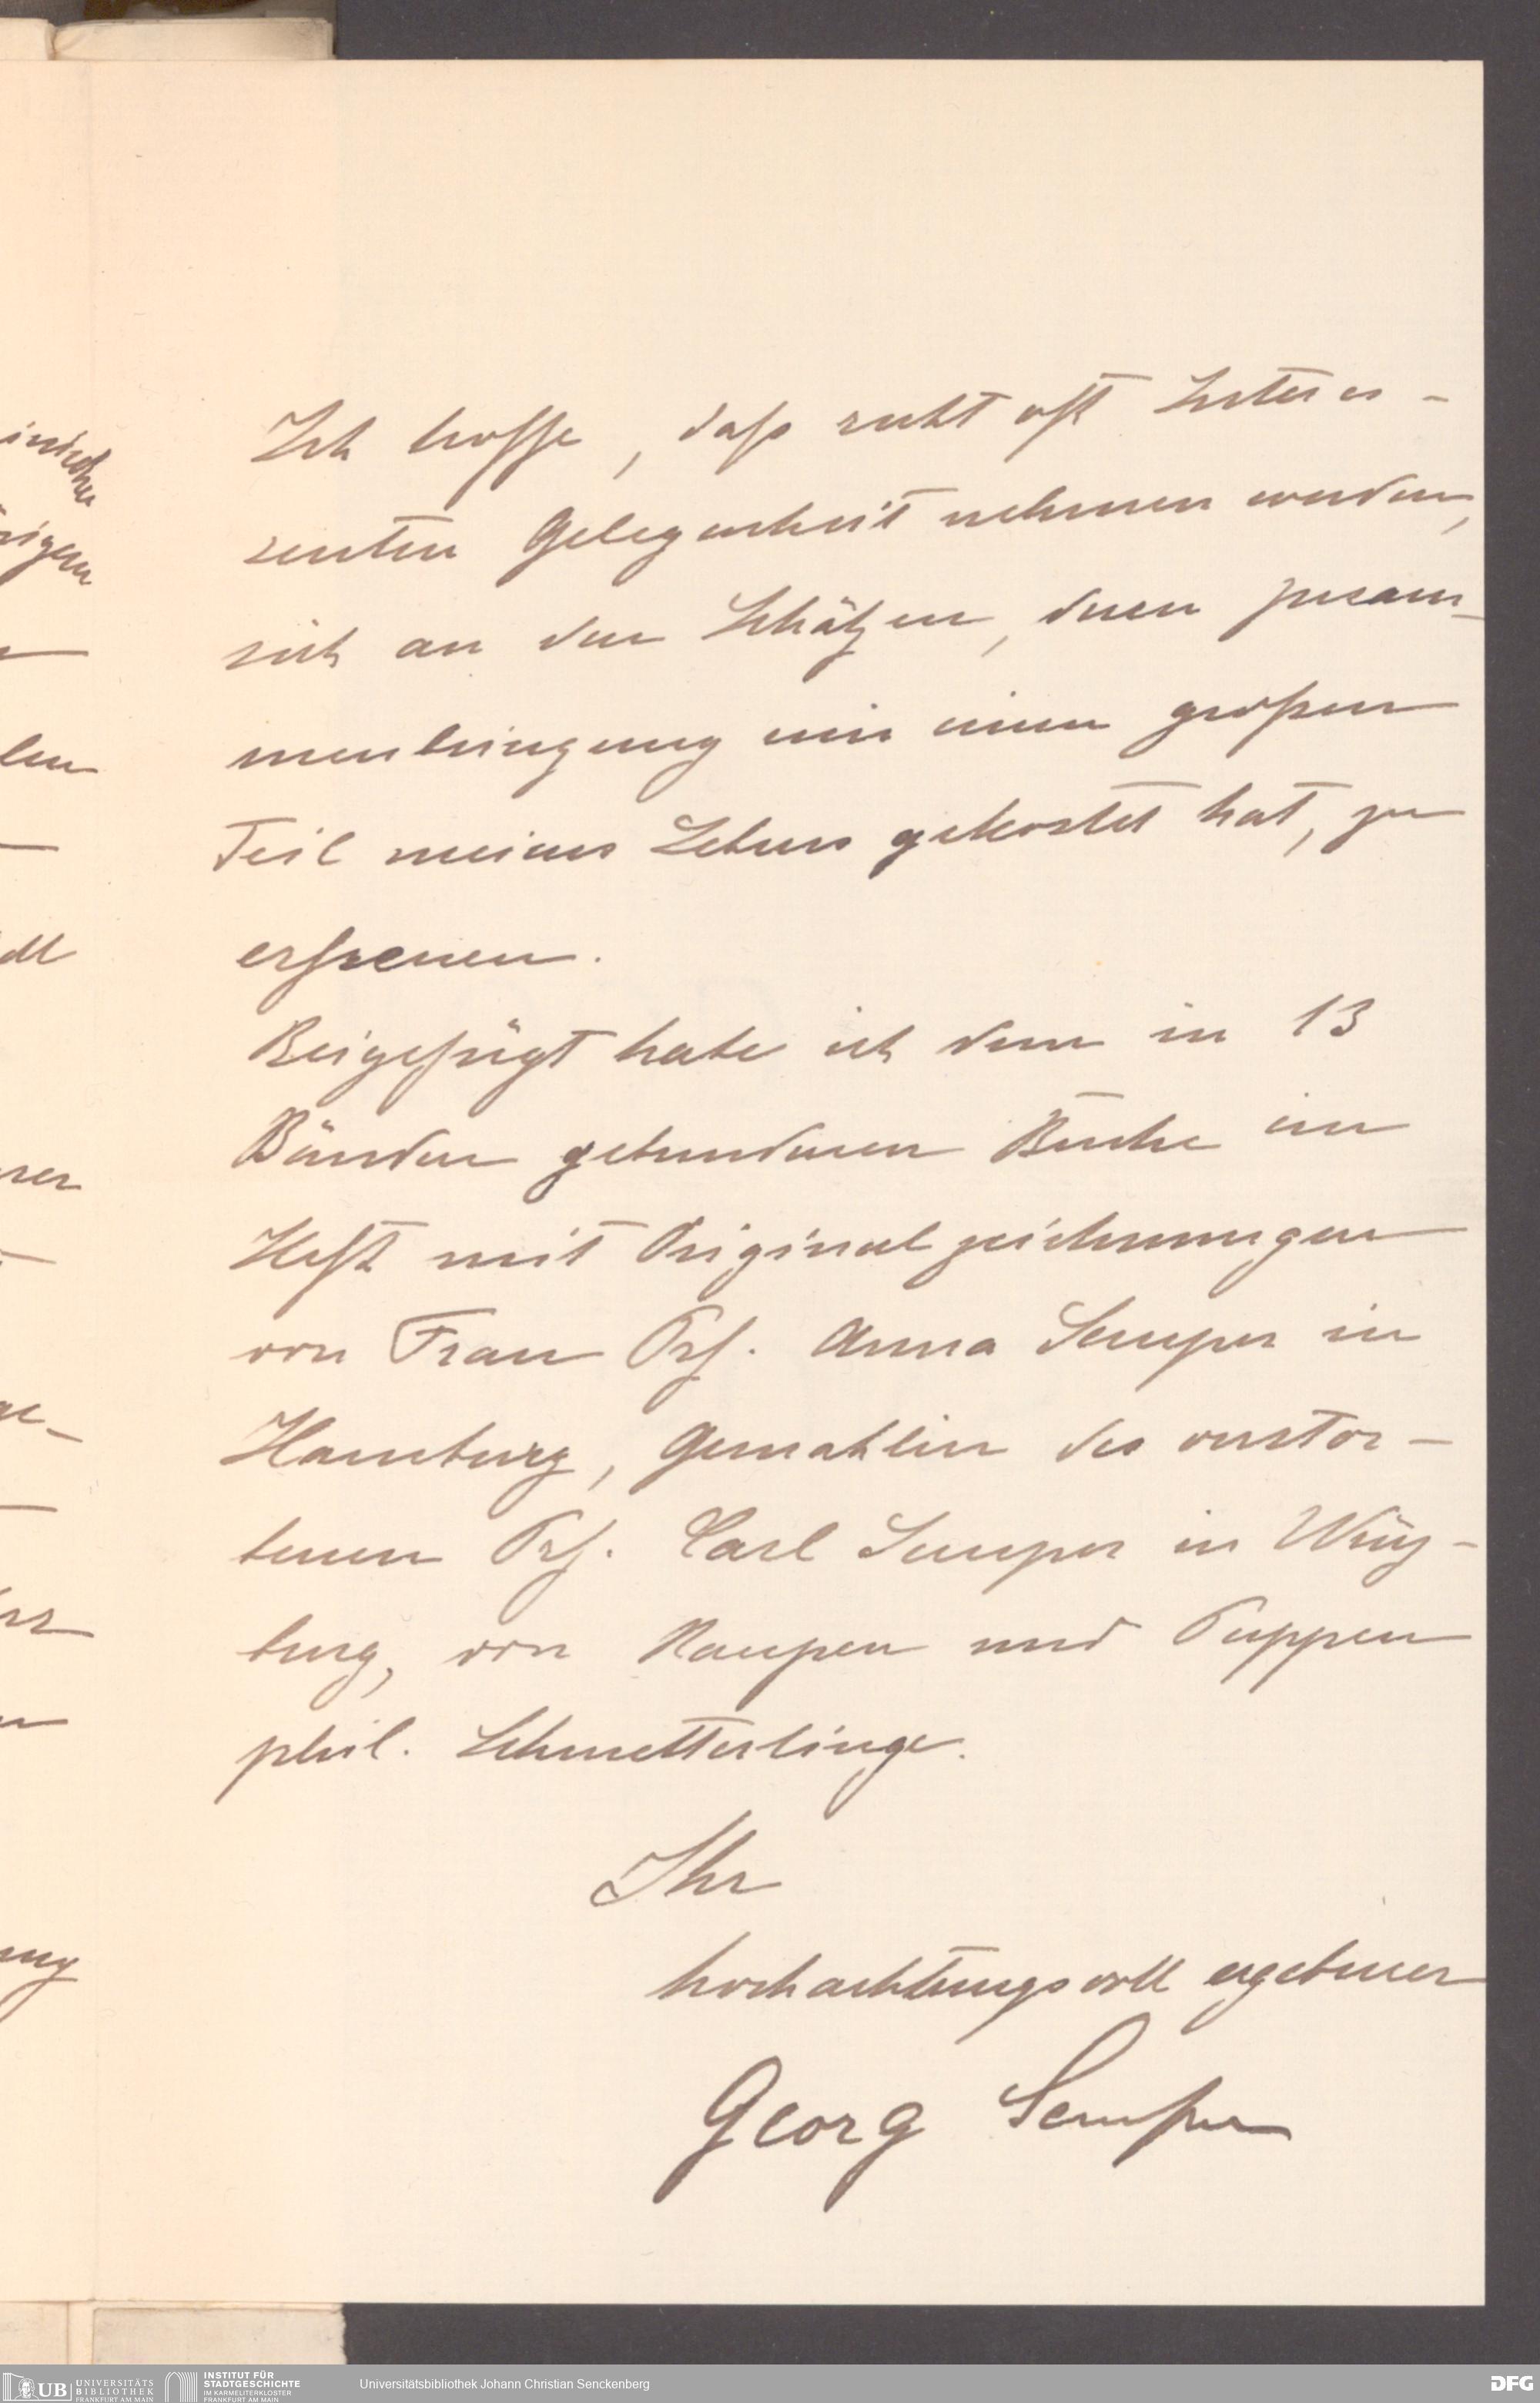 Ich hoffe, daß recht oft Interes-
senten Gelegenheit nehmen werden,
sich an den Schätzen, deren zusam-
menbringung mir einen großen
Teil meines Lebens gekostet hat, zu
erfreuen.
Beigefügt habe ich dem in 13
Bänden gebundenen Buche ein
Heft mit Originalzeichnungen
von Frau Prf. Anna Semper in
Hamburg, Gemahlin des verstor-
benen Prf. Carl Semper in Würz-
burg, von Raupen und Puppen
phil. Schmetterlinge.
Ihr
hochachtungsvoll ergebener
Georg Semper
UB UNIVERSITÄTS
BIBLIOTHEK
FRANKFURT AM MAIN
INSTITUT FÜR
STADTGESCHICHTE
IM KARMELITERKLOSTER
FRANKFURT AM MAIN
Universitätsbibliothek Johann Christian Senckenberg
DFG